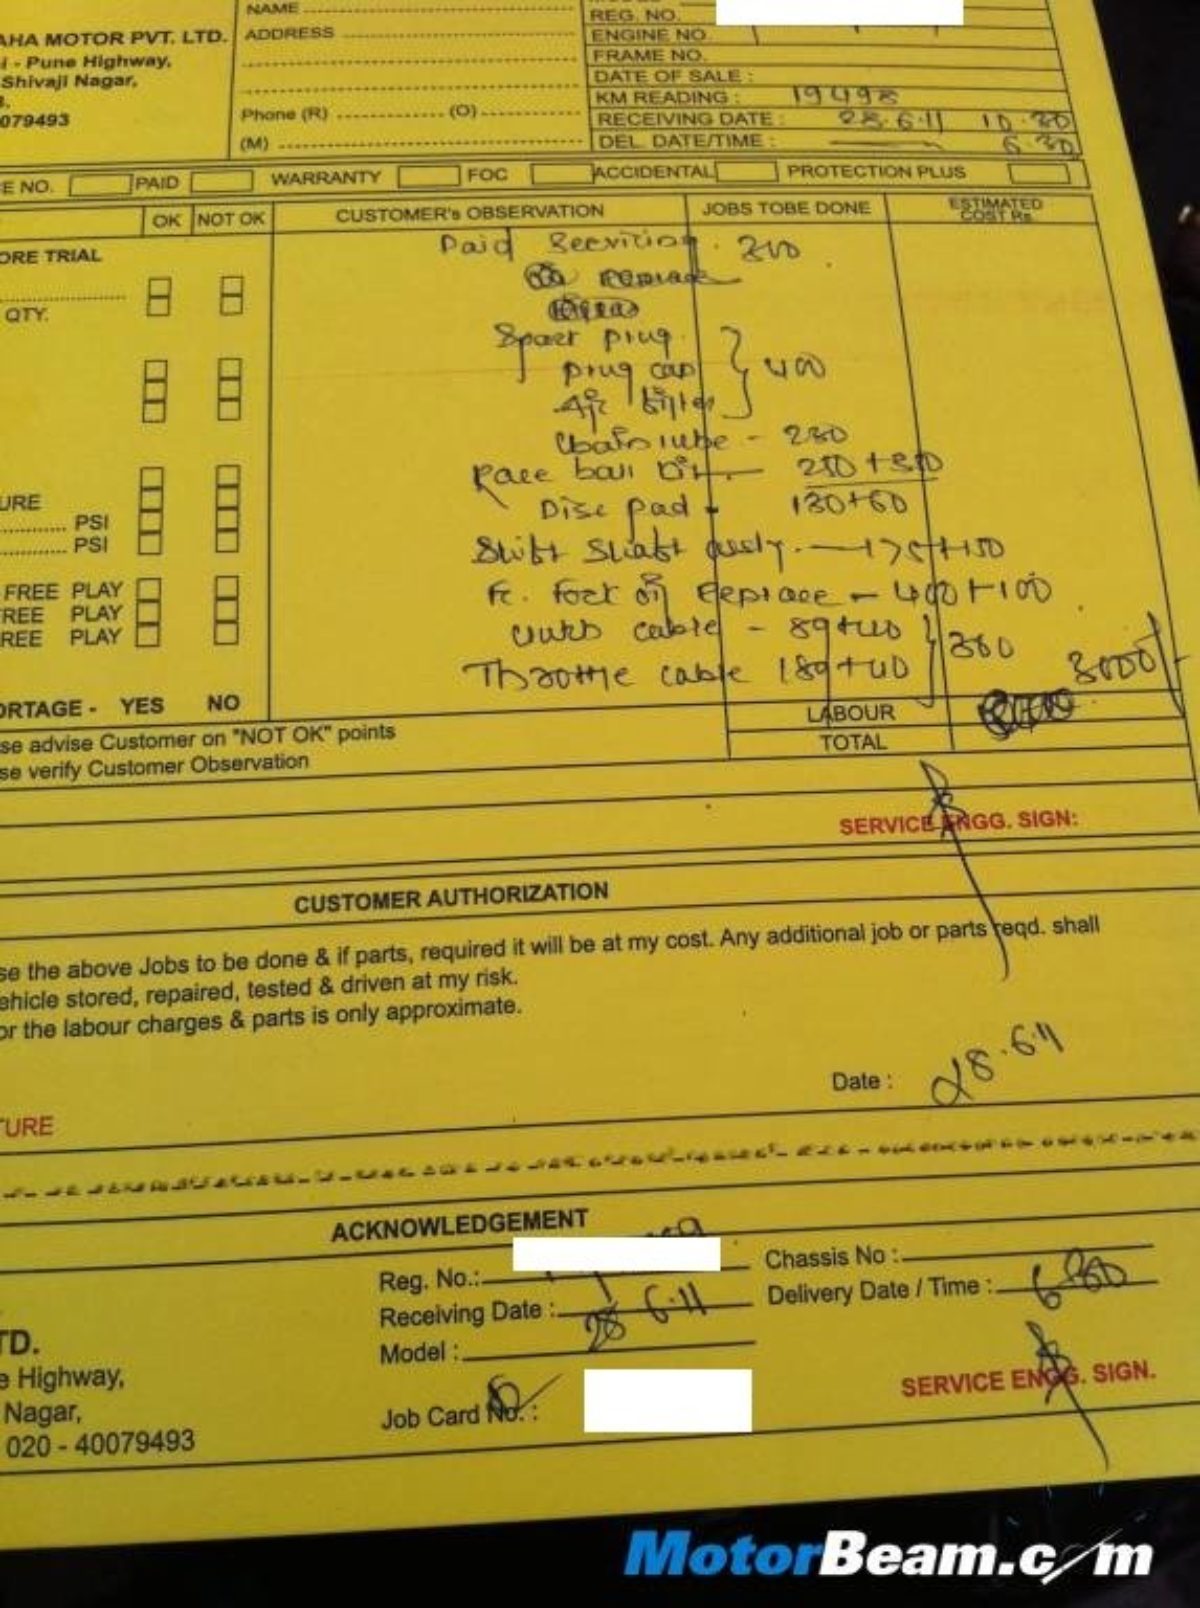 NAME
REG. NO.
AHA MOTOR PVT. LTD.
ADDRESS
ENGINE NO.
- Pune Highway,
FRAME NO.
Shivaji Nagar,
DATE OF SALE :
KM READING : 19498
079493
Phone (R) (O)
RECEIVING DATE : 28.6.11 10.30
(M)
DEL. DATE/TIME : 6.30
E NO. PAID WARRANTY FOC ACCIDENTAL PROTECTION PLUS
OK NOT OK CUSTOMER's OBSERVATION JOBS TOBE DONE ESTIMATED COST Rs.
ORE TRIAL
Paid Servicing. 300
QTY.
replace
plug
plug cap 400
Air filter
Chain lube - 280
Race ball kit -
URE
Disc pad - 130+60
PSI
PSI
Shift shaft assly. - 175+150
FREE PLAY
Fr. fork oil Replace - 400+100
REE PLAY
cable - 89+40 360
REE PLAY
Throttle cable 189+40
3000/-
ORTAGE - YES NO
LABOUR
se advise Customer on "NOT OK" points
TOTAL
se verify Customer Observation
SERVICE ENGG. SIGN:
CUSTOMER AUTHORIZATION
se the above Jobs to be done & if parts, required it will be at my cost. Any additional job or parts reqd. shall
ehicle stored, repaired, tested & driven at my risk.
or the labour charges & parts is only approximate.
Date : 28.6.11
TURE
ACKNOWLEDGEMENT
Reg. No.:
Chassis No :
Receiving Date : 28 6.11
Delivery Date / Time : 6
TD.
Model :
e Highway,
SERVICE ENGG. SIGN.
Nagar,
Job Card No. :
020 - 40079493
MotorBeam.com